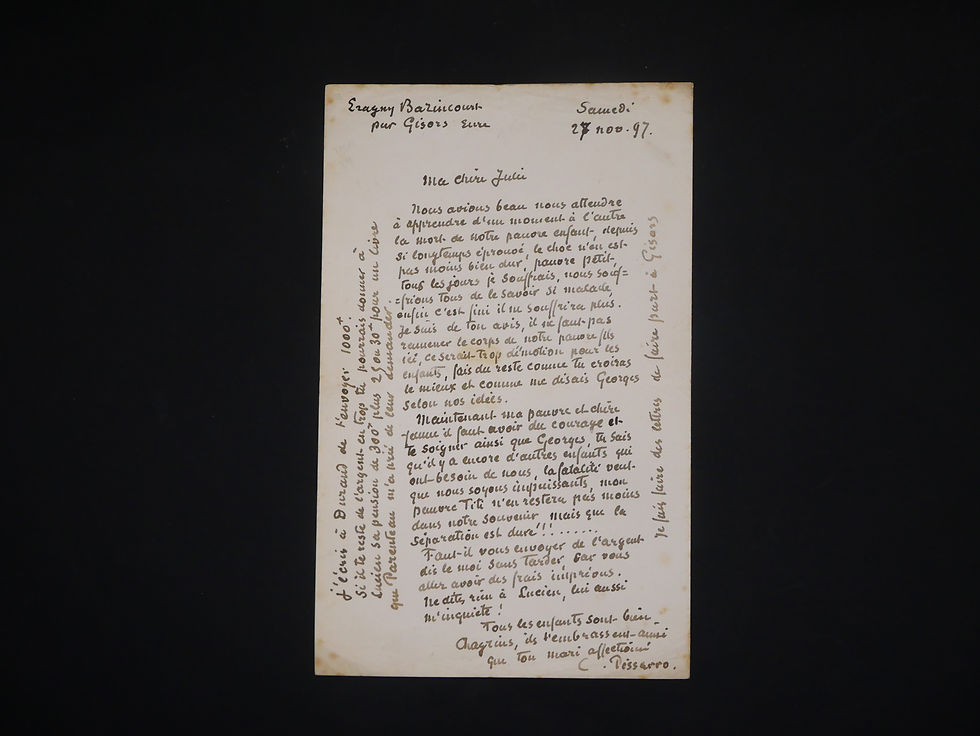 Eragny Bazincourt
par Gisors Eure
Samedi
27 nov. 97.
Ma chère Julie
Nous avions beau nous attendre
à apprendre d'un moment à l'autre
la mort de notre pauvre enfant, depuis
si longtemps éprouvé, le choc n'en est
pas moins bien dur, pauvre petit,
tous les jours je souffrais, nous souf=
=frions tous de le savoir si malade,
enfin c'est fini il ne souffrira plus.
Je suis de ton avis, il ne faut pas
ramener le corps de notre pauvre fils
ici, ce serait trop d'émotion pour les
enfants, fais du reste comme tu croiras
le mieux et comme me disais Georges
selon nos idées.
Maintenant ma pauvre et chère
femme il faut avoir du courage et
te soigner ainsi que Georges, tu sais
qu'il y a encore d'autres enfants qui
ont besoin de nous, la fatalité veut
que nous soyons impuissants, mon
pauvre Titi n'en restera pas moins
dans notre souvenir mais que la
séparation est dure!!!.......
Faut-il vous envoyer de l'argent
dis le moi sans tarder car vous
allez avoir des frais imprévus.
Ne dites rien à Lucien, lui aussi
m'inquiète!
Tous les enfants sont bien
chagrins, ils t'embrassent ainsi
que ton mari affectionné
C. Pissarro.
J'écris à Durand de t'envoyer 1000f
Si il te reste de l'argent en trop tu pourrais donner à
Lucien sa pension de 300f plus 25 ou 30f pour un livre
que Parenteau m'a prié de leur demander.
Je fais faire des lettres de faire part à Gisors